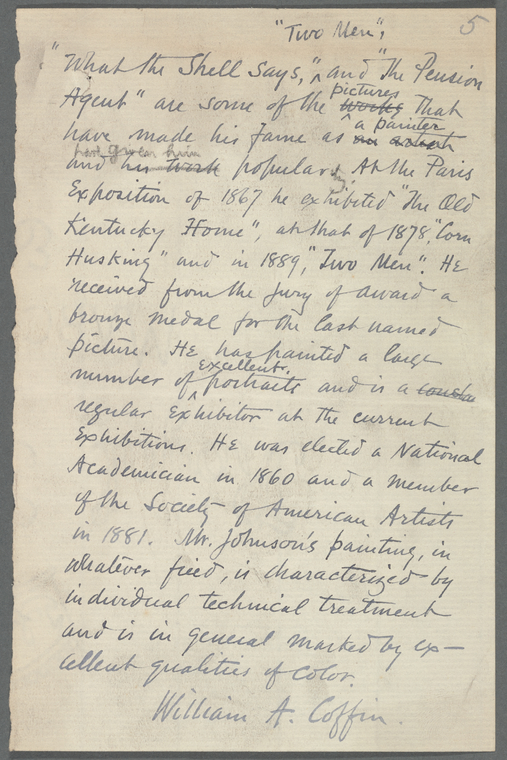 5
"Two Men",
"What the Shell Says," and "The Pension
Agent" are some of the works pictures that
have made his fame as an artist a painter
and his work have given him popularity. At the Paris
Exposition of 1867 he exhibited "The Old
Kentucky Home", at that of 1878, "Corn
Husking" and in 1889, "Two Men". He
received from the jury of award a
bronze medal for the last named
picture. He has painted a large
number of excellent portraits and is a
regular Exhibitor at the current
Exhibitions. He was elected a National
Academician in 1860 and a member
of the Society of American Artists
in 1881. Mr. Johnson's painting, in
whatever field, is characterized by
individual technical treatment
and is in general marked by ex-
cellent qualities of color.
William A. Coffin.